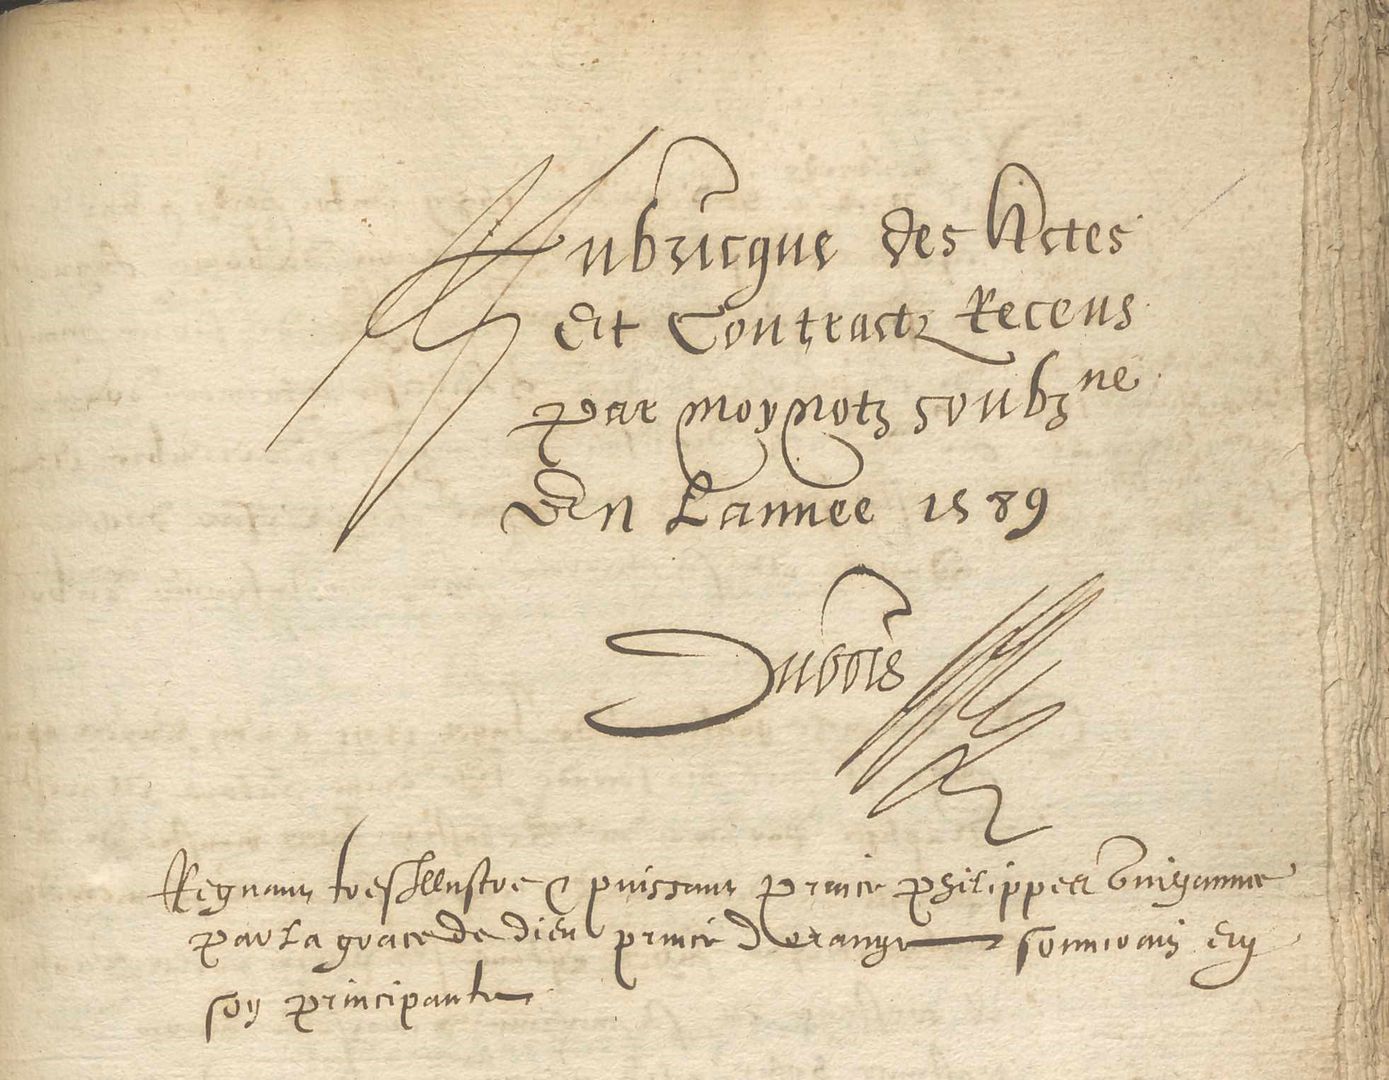 Rubricque des Actes
Et Contractz Receus
par moy Notz soubzne
En Lannee 1589
Dubois
Regnant tresillustre & puissant prince philippes Guigaume
par La grace de dieu prince Dorange souuerain en
soy principaulte